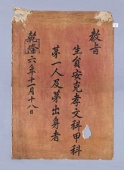 教旨
生員安克孝文科甲科
第一人及第出身者
乾隆六年十一月十八日